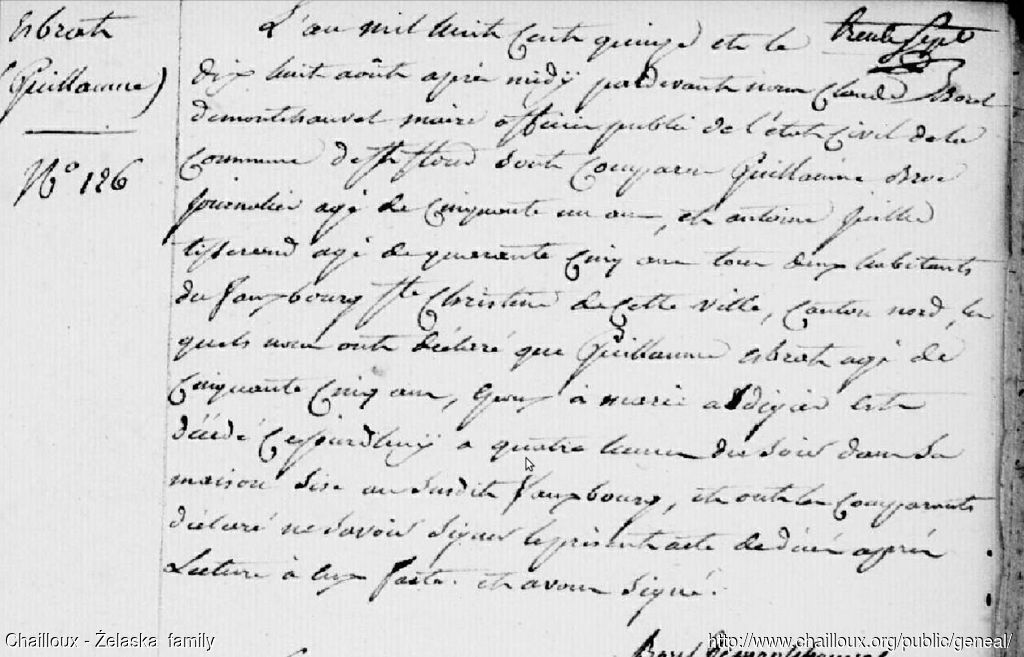 Esbrat
(Guillaume)
N° 126
trente Sept
L'an mil huit Cent quinze et le
dix huit août après midy pardevant nous Claude Borel
demontchauvel maire officier public de l'état Civil de la
Commune de St flour sont Comparu Guillaume
journalier agé de Cinquante un ans, et antoine juillet
tisserand agé de quarante Cinq ans tous deux habitants
du fauxbourg Ste Christine de Cette ville, Canton nord, les
quels nous ont déclaré que Guillaume Esbrat agé de
Cinquante Cinq ans, Epoux à marie est
décédé Cejourdhuy a quatre heures du soir dans Sa
maison Sise au Susdit fauxbourg, et ont les Comparants
déclaré ne Savoir Signer le présent acte de décès après
Lecture à eux faite. et avons Signé.
Borel
Chailloux - Żelaska family
http://www.chailloux.org/public/geneal/